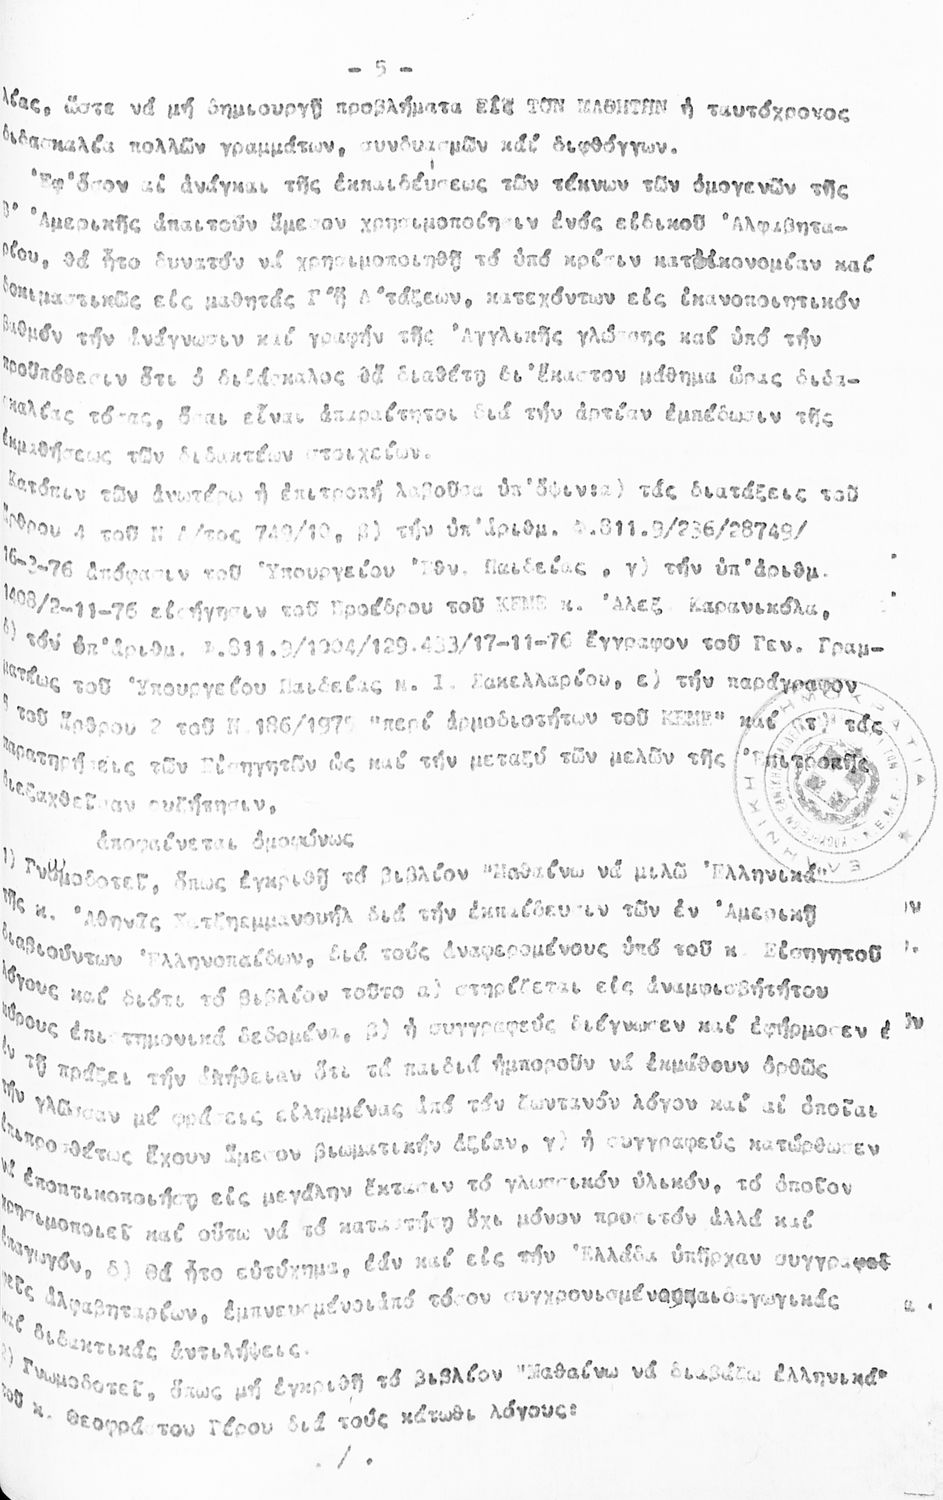 - 5 -
λείας, ὥστε νά μή δημιουργῇ προβλήματα εἰς ΤΟΝ ΜΑΘΗΤΗΝ ἡ ταυτόχρονος
διδασκαλία πολλῶν γραμμάτων, συνδυασμῶν καί διφθόγγων.
Ἐφ'ὅσον αἱ ἀνάγκαι τῆς ἐκπαιδεύσεως τῶν τέκνων τῶν ὁμογενῶν τῆς
Β' Ἀμερικῆς ἀπαιτοῦν ἄμεσον χρησιμοποίησιν ἑνός εἰδικοῦ Ἀλφαβητα-
ρίου, θά ἦτο δυνατόν νά χρησιμοποιηθῇ τό ὑπό κρίσιν κατ'οἰκονομίαν καί
δοκιμαστικῶς εἰς μαθητάς Γ'ἤ Δ'τάξεων, κατεχόντων εἰς ἱκανοποιητικόν
βαθμόν τήν ἀνάγνωσιν καί γραφήν τῆς Ἀγγλικῆς γλώσσης καί ὑπό τήν
προϋπόθεσιν ὅτι ὁ διδάσκαλος θά διαθέτῃ δι'ἕκαστον μάθημα ὥρας διδα-
σκαλίας τόσας, ὅσαι εἶναι ἀπαραίτητοι διά τήν ἀρτίαν ἐμπέδωσιν τῆς
ἐκμαθήσεως τῶν διδακτέων στοιχείων.
Κατόπιν τῶν ἀνωτέρω ἡ ἐπιτροπή λαβοῦσα ὑπ'ὄψιν:α) τάς διατάξεις τοῦ
ἄρθρου 4 τοῦ Ν Δ/τος 749/10, β) τήν ὑπ'ἀριθμ. Φ.811.9/236/28749/
16-3-76 ἀπόφασιν τοῦ Ὑπουργείου Ἐθν. Παιδείας , γ) τήν ὑπ'ἀριθμ.
1408/2-11-76 εἰσήγησιν τοῦ Προέδρου τοῦ ΚΕΜΕ κ. Ἀλεξ. Καρανικόλα,
δ) τόν ὑπ'ἀριθμ. Φ.811.9/1904/129.433/17-11-76 ἔγγραφον τοῦ Γεν. Γραμ-
ματέως τοῦ Ὑπουργείου Παιδείας κ. Ι. Σακελλαρίου, ε) τήν παράγραφον
τοῦ ἄρθρου 2 τοῦ Ν.186/1975 "περί ἁρμοδιοτήτων τοῦ ΚΕΜΕ" καί στ) τάς
παρατηρήσεις τῶν Εἰσηγητῶν ὡς καί τήν μεταξύ τῶν μελῶν τῆς Ἐπιτροπῆς
διεξαχθεῖσαν συζήτησιν,
ἀποφαίνεται ὁμοφώνως
1) Γνωμοδοτεῖ, ὅπως ἐγκριθῇ τό βιβλίον "Μαθαίνω νά μιλῶ Ἑλληνικά"
τῆς κ. Ἀθηνᾶς Χατζηεμμανουήλ διά τήν ἐκπαίδευσιν τῶν ἐν Ἀμερικῇ
διαβιούντων Ἑλληνοπαίδων, διά τούς ἀναφερομένους ὑπό τοῦ κ. Εἰσηγητοῦ
λόγους καί διότι τό βιβλίον τοῦτο α) στηρίζεται εἰς ἀναμφισβήτήτου
κύρους ἐπιστημονικά δεδομένα, β) ἡ συγγραφεύς διέγνωσεν καί ἐφήρμοσεν ἐ
ἐν τῇ πράξει τήν ἀλήθειαν ὅτι τά παιδιά ἠμποροῦν νά ἐκμάθουν ὀρθῶς
τήν γλῶσσαν μέ φράσεις εἰλημμένας ἀπό τόν ζωντανόν λόγον καί αἱ ὁποῖαι
ἐπιπροσθέτως ἔχουν ἄμεσον βιωματικήν ἀξίαν, γ) ἡ συγγραφεύς κατώρθωσεν
νά ἐποπτικοποιήσῃ εἰς μεγάλην ἔκτασιν τό γλωσσικόν ὑλικόν, τό ὁποῖον
χρησιμοποιεῖ καί οὕτω νά τό καταστήσῃ ὄχι μόνον προσιτόν ἀλλά καί
ἐπαγωγόν, δ) θά ἦτο εὐτύχημα, ἐάν καί εἰς τήν Ἑλλάδα ὑπῆρχαν συγγραφεῖ
ἀλφαβηταρίων, ἐμπνευσμένοι ἀπό τόσον συγχρονισμένας παιδαγωγικάς
καί διδακτικάς ἀντιλήψεις.
2) Γνωμοδοτεῖ, ὅπως μή ἐγκριθῇ τό βιβλίον "Μαθαίνω νά διαβάζω ἑλληνικά"
τοῦ κ. Θεοφράστου Γέρου διά τούς κάτωθι λόγους:
. / .
ΕΛΛΗΝΙΚΗ ΔΗΜΟΚΡΑΤΙΑ